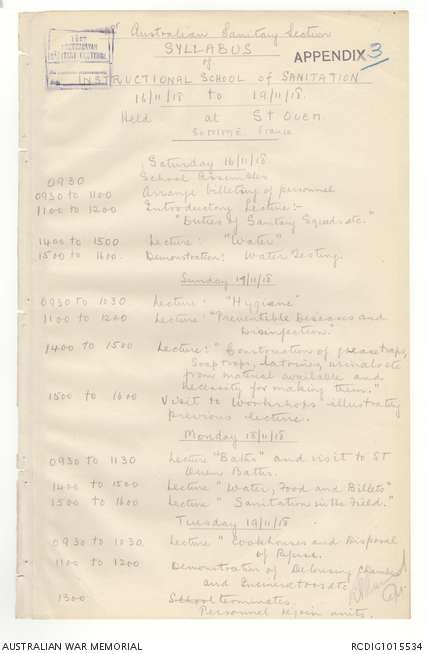 of Australian Sanitary Section
SYLLABUS
of
APPENDIX 3
INSTRUCTIONAL SCHOOL of SANITATION
16/11/18 to 19/11/18.
Held at St Ouen.
Somme France
Saturday 16/11/18
0930 School Assembles
0930 to 1100 Arrange billeting of personnel
1100 to 1200 Introductory Lecture:-
"Duties of Sanitary Squads etc."
1400 to 1500 Lecture: "Water"
1500 to 1600. Demonstration: Water Testing.
Sunday 17/11/18
0930 to 1030 Lecture: "Hygiene"
1100 to 1200 Lecture: "Preventible Diseases and
Disinfection."
1400 to 1500 Lecture: "Construction of grease traps,
Soap traps, latrines, urinals etc
from material available and
necessity for making them."
1500 to 1600 Visit to Workshops illustrating
previous lecture.
Monday 18/11/18
0930 to 1130 Lecture "Baths" and visit to St
Ouen Baths.
1400 to 1500 Lecture "Water, Food and Billets"
1500 to 1600 Lecture "Sanitation in the Field."
Tuesday 19/11/18
0930 to 1030 Lecture "Cookhouses and Disposal
of Refuse.
1100 to 1200 Demonstration of Delousing Chamber
and Incinerators etc
1300 School terminates.
Personnel rejoin units.
AUSTRALIAN WAR MEMORIAL
RCDIG1015534